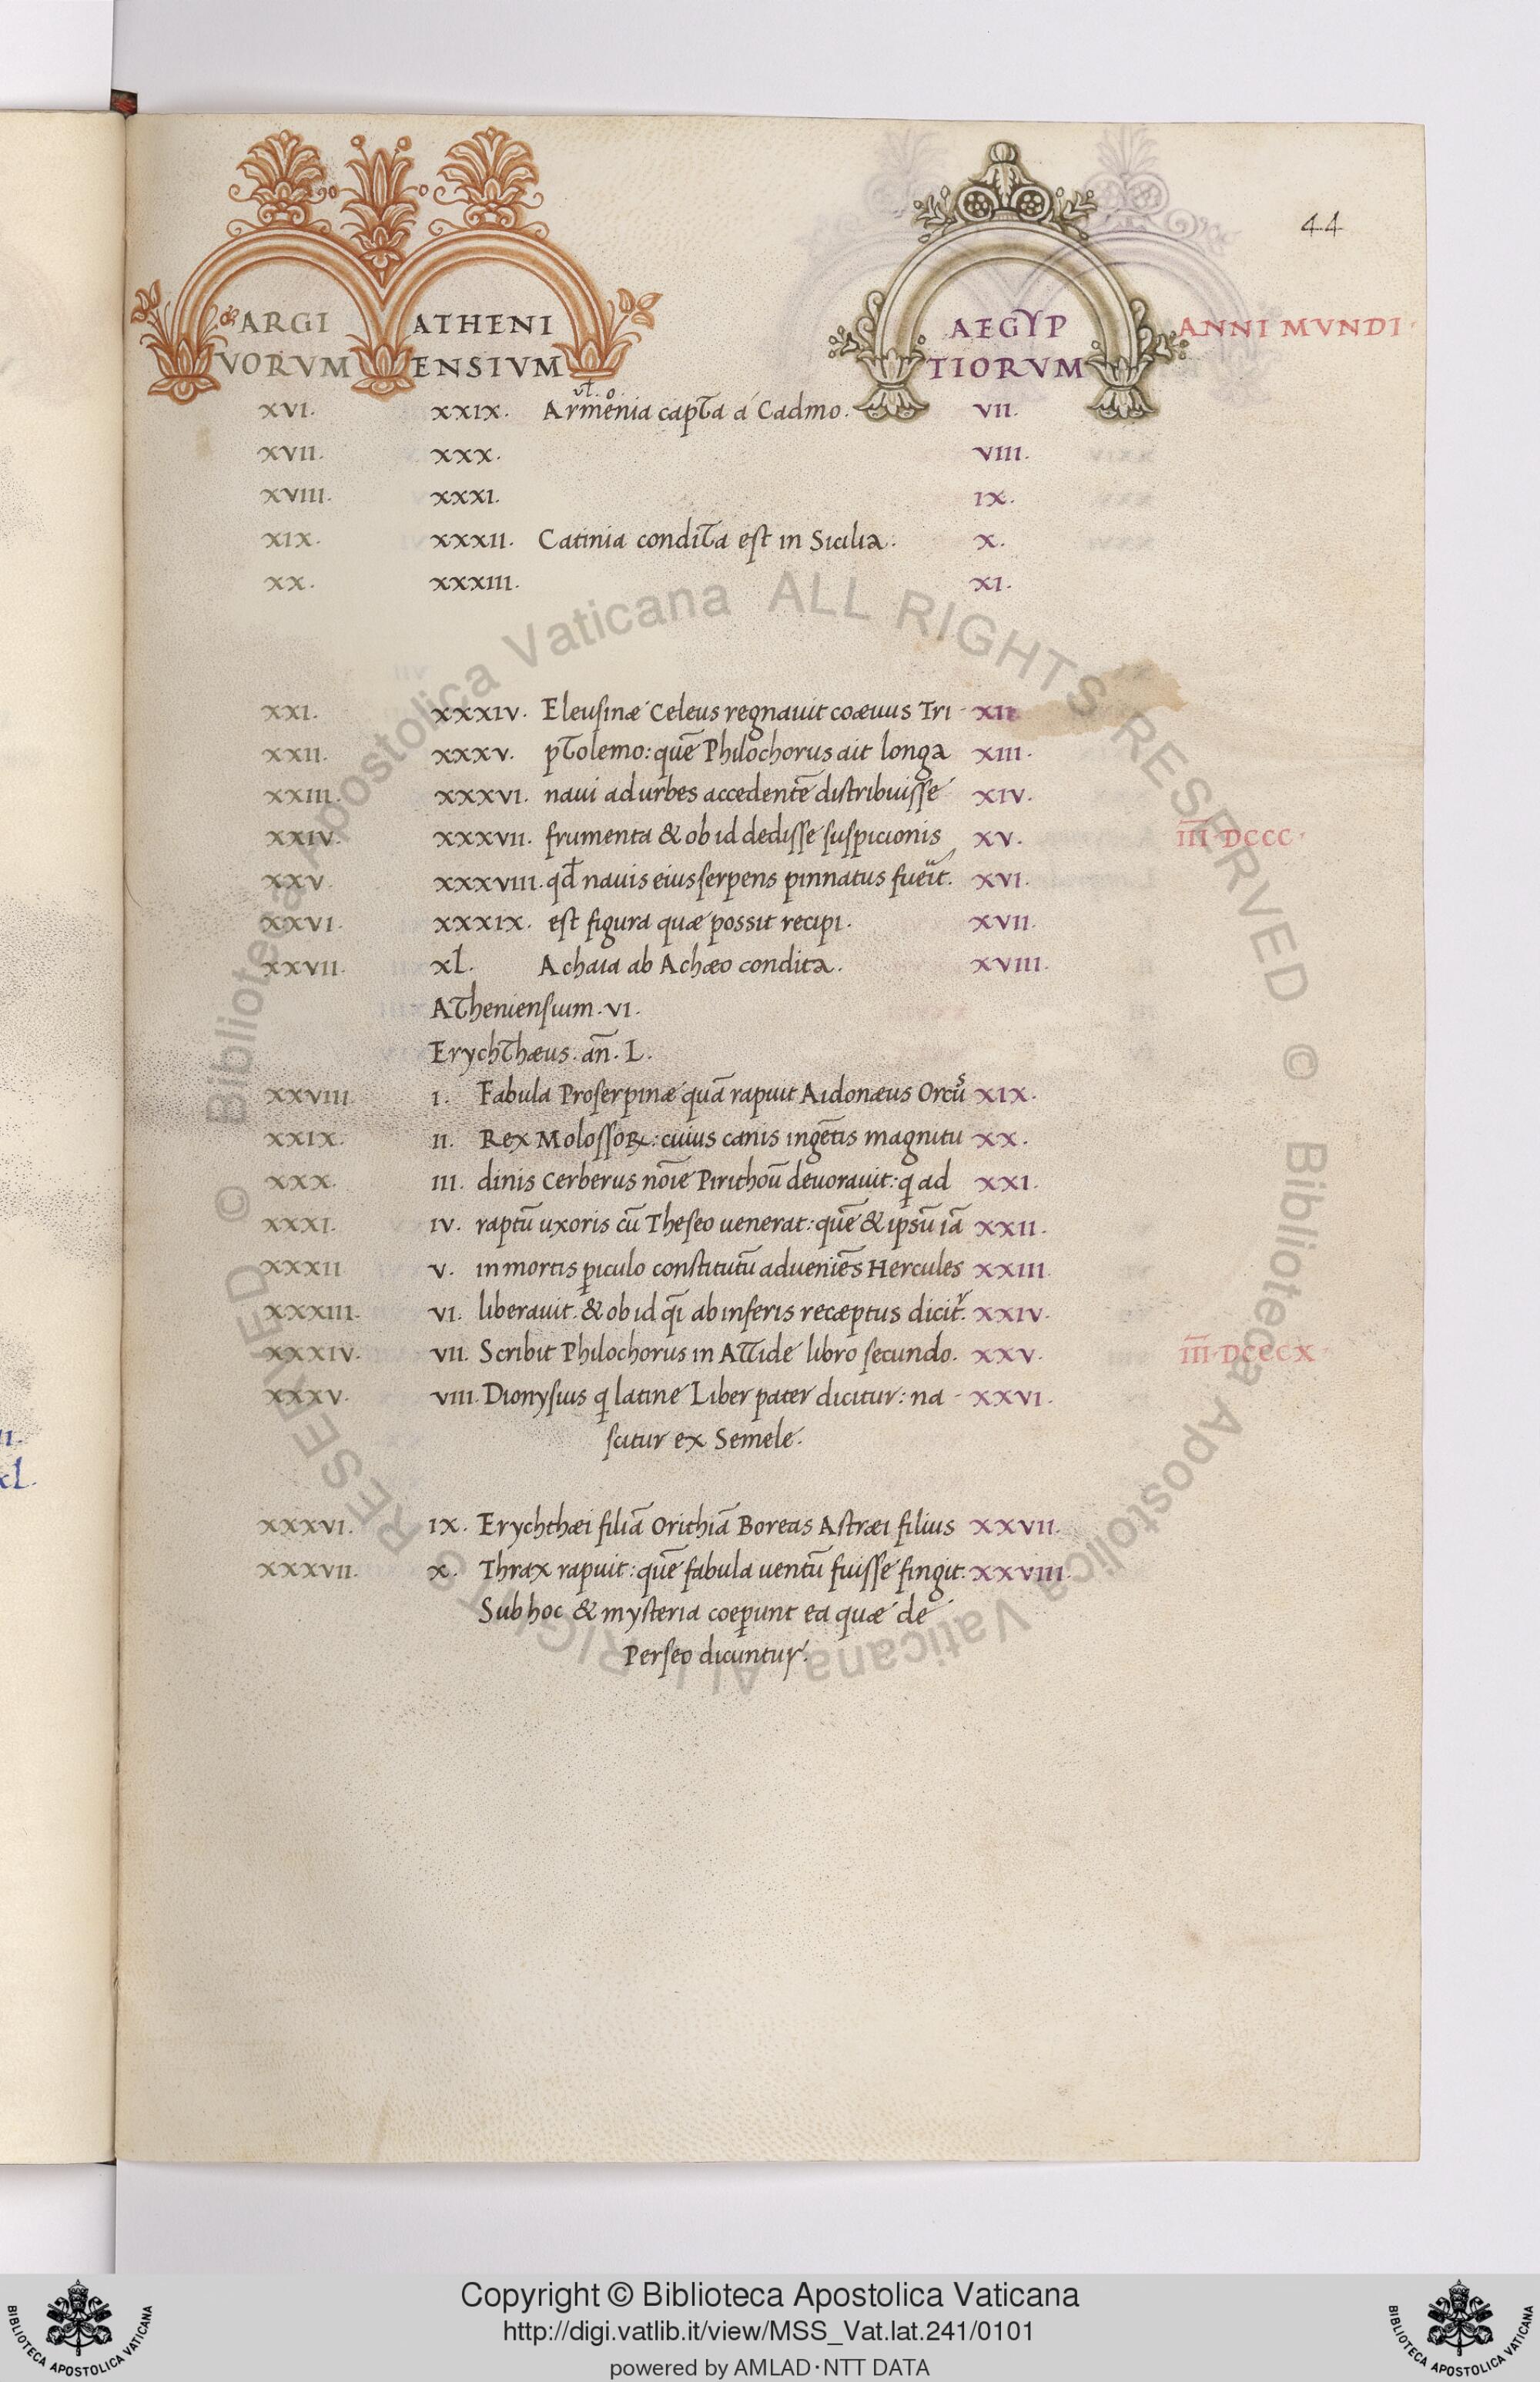 44
ARGI ATHENI AEGYP ANNI MVNDI
VORVM ENSIVM TIORVM
vl. o.
XVI. XXIX. Armenia capta a Cadmo. VII.
XVII. XXX. VIII.
XVIII. XXXI. IX.
XIX. XXXII. Catinia condita est in Sicilia. X.
XX. XXXIII. XI.
XXI. XXXIV. Eleusinæ Celeus regnauit coæuus Tri- XII
XXII. XXXV. ptolemo: quē Philochorus ait longa XIII.
XXIII. XXXVI. naui ad urbes accedentē distribuisse XIV.
XXIV. XXXVII. frumenta & ob id dedisse suspicionis XV. III DCCC.
XXV. XXXVIII. qd nauis eius serpens pinnatus fueīt. XVI.
XXVI. XXXIX. est figura quæ possit recipi. XVII.
XXVII. XL. Achaia ab Achæo condita. XVIII.
Atheniensium. VI.
Erychthæus. añ. L.
XXVIII I. Fabula Proserpinæ quā rapuit Aidonæus Orcūs XIX.
XXIX. II. Rex Molossoꝝ: cuius canis ingētis magnitu XX.
XXX. III. dinis Cerberus noīe Pirithoū deuorauit: q ad XXI.
XXXI. IV. raptū uxoris cū Theseo uenerat: quē & ipsū iā XXII.
XXXII V. in mortis piculo constitutū adueniēs Hercules XXIII
XXXIII. VI. liberauit. & ob id q̄i ab inferis recæptus dicit. XXIV.
XXXIV. VII. Scribit Philochorus in Attide libro secundo. XXV. III DCCCX
XXXV. VIII. Dionysius q latine Liber pater dicitur: na- XXVI.
scitur ex Semele.
XXXVI. IX. Erychthæi filiā Orithiā Boreas Astræi filius XXVII.
XXXVII. X. Thrax rapuit: quē fabula uentū fuisse fingit. XXVIII.
Sub hoc & mysteria coepunt ea quæ de
Perseo dicuntur.
© Biblioteca Apostolica Vaticana ALL RIGHTS RESERVED © Biblioteca Apostolica Vaticana ALL RIGHTS RESERVED
Copyright © Biblioteca Apostolica Vaticana
http://digi.vatlib.it/view/MSS_Vat.lat.241/0101
powered by AMLAD·NTT DATA
BIBLIOTECA APOSTOLICA VATICANA
BIBLIOTECA APOSTOLICA VATICANA